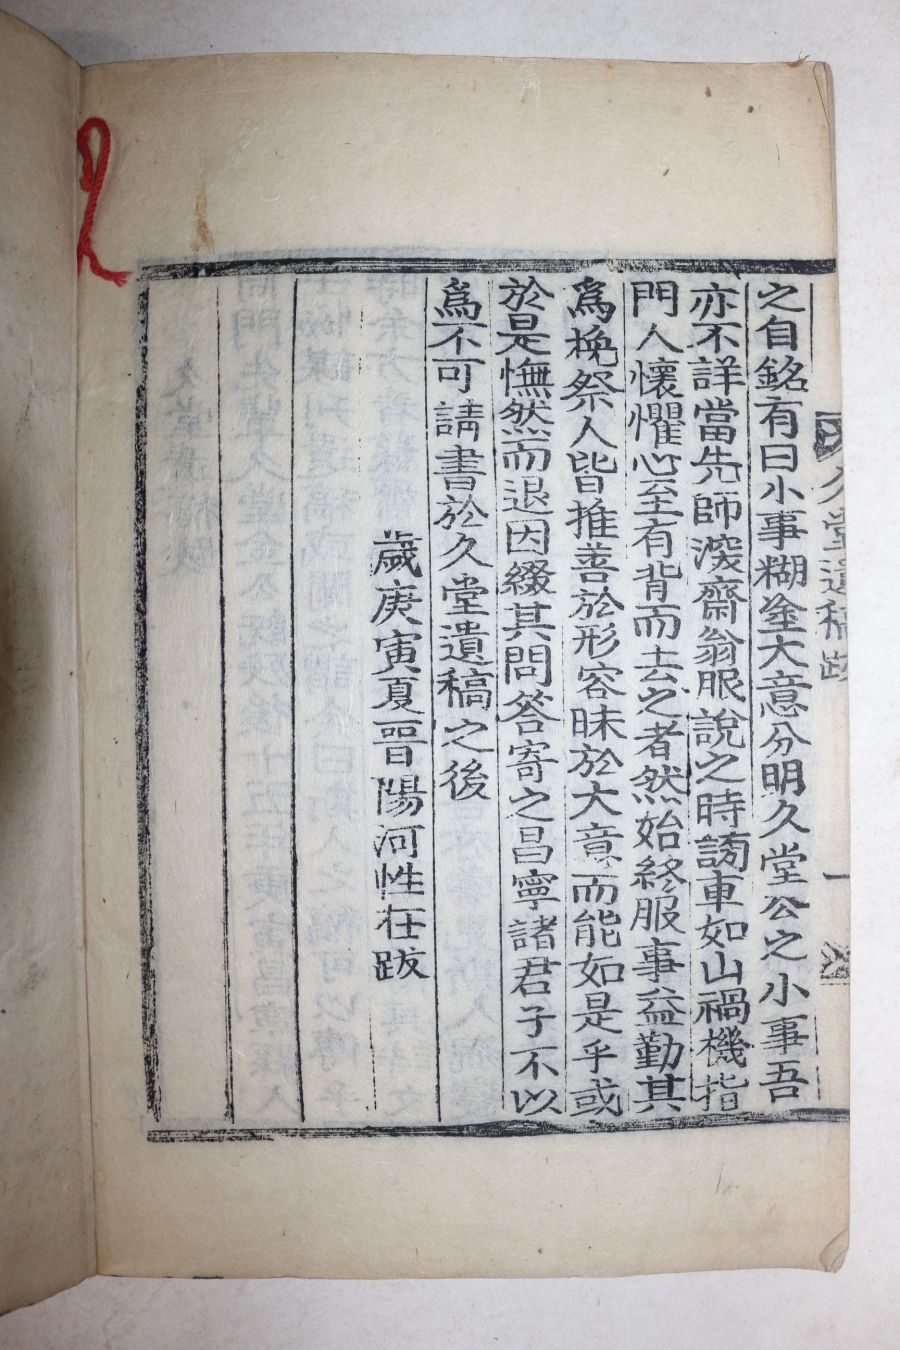 久堂遺稿跋 一
之自銘有曰小事糊塗大意分明久堂公之小事吾
亦不詳當先師深齋翁服說之時謗車如山禍機指
門人懷懼心至有背而去之者然始終服事益勤其
為挽祭人皆推善於形容昧於大意而能如是乎或
於是憮然而退因綴其問答寄之昌寧諸君子不以
為不可請書於久堂遺稿之後
歲庚寅夏晋陽河性在跋